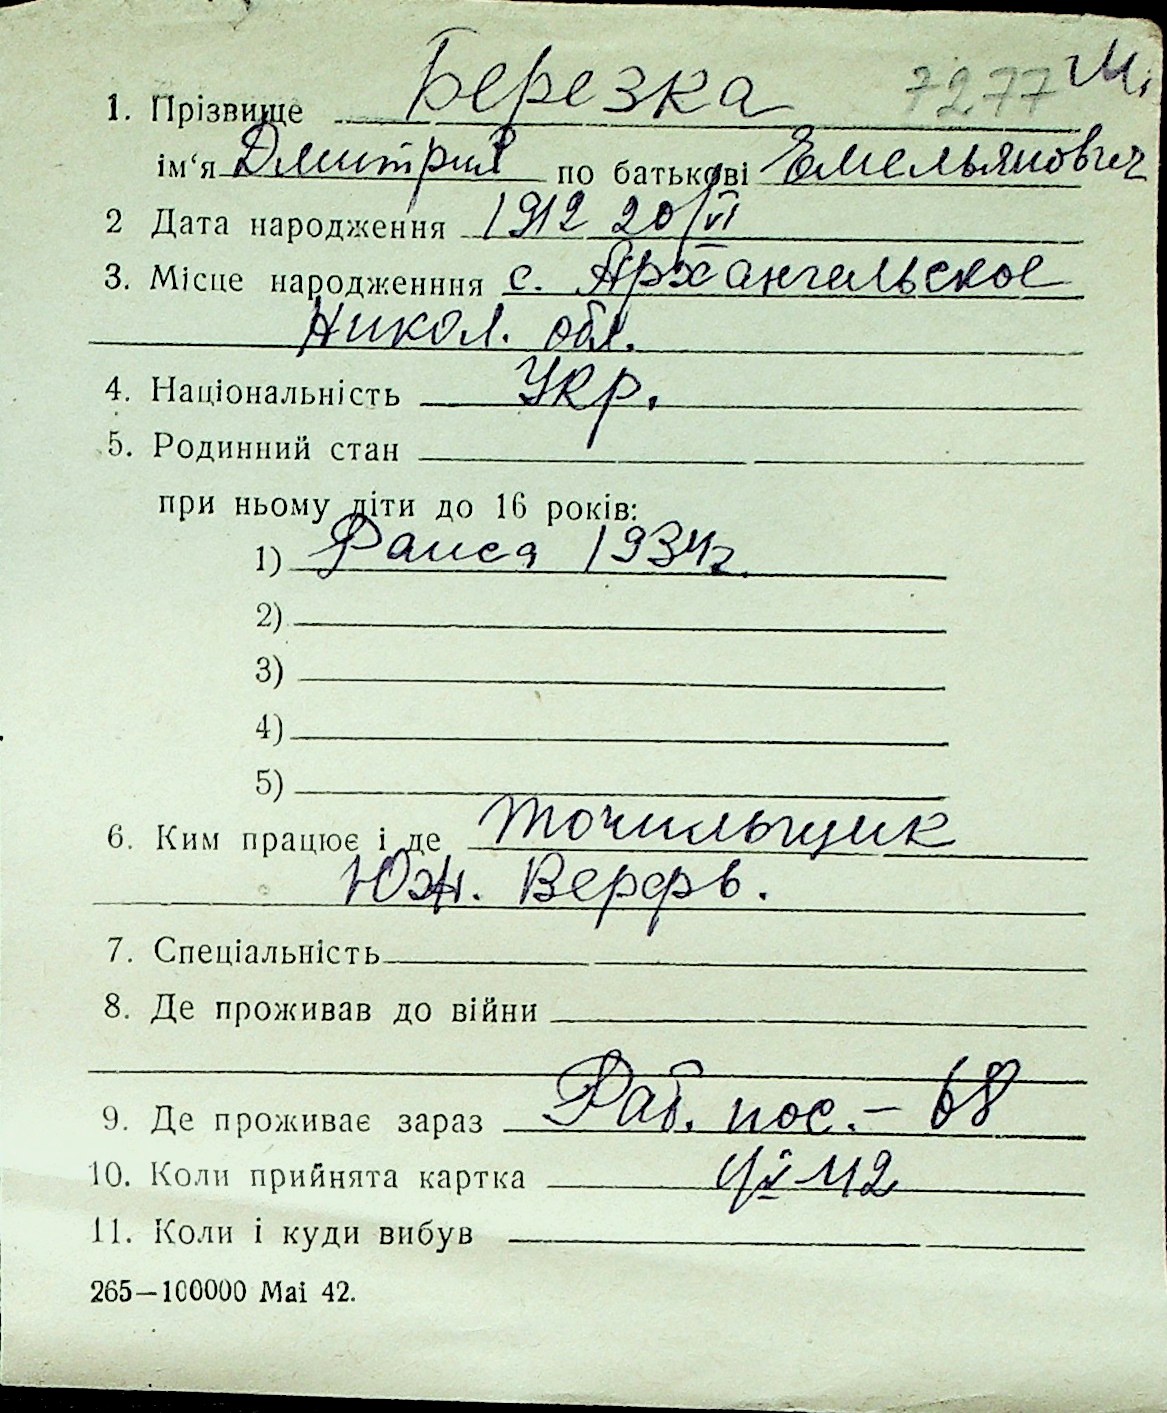 1. Прізвище Березка 7277 М.
ім‘я Дмитрий по батькові Емельянович
2 Дата народження 1912 20/VI
3. Місце народженння с. Архангельское
Никол. обл.
4. Національність Укр.
5. Родинний стан
при ньому діти до 16 років:
1) Раиса 1934г.
2)
3)
4)
5)
6. Ким працює і де Точильщик
Юж. Верфь.
7. Спеціальність
8. Де проживав до війни
9. Де проживає зараз Раб. пос. – 68
10. Коли прийнята картка 42
11. Коли і куди вибув
265—100000 Mai 42.